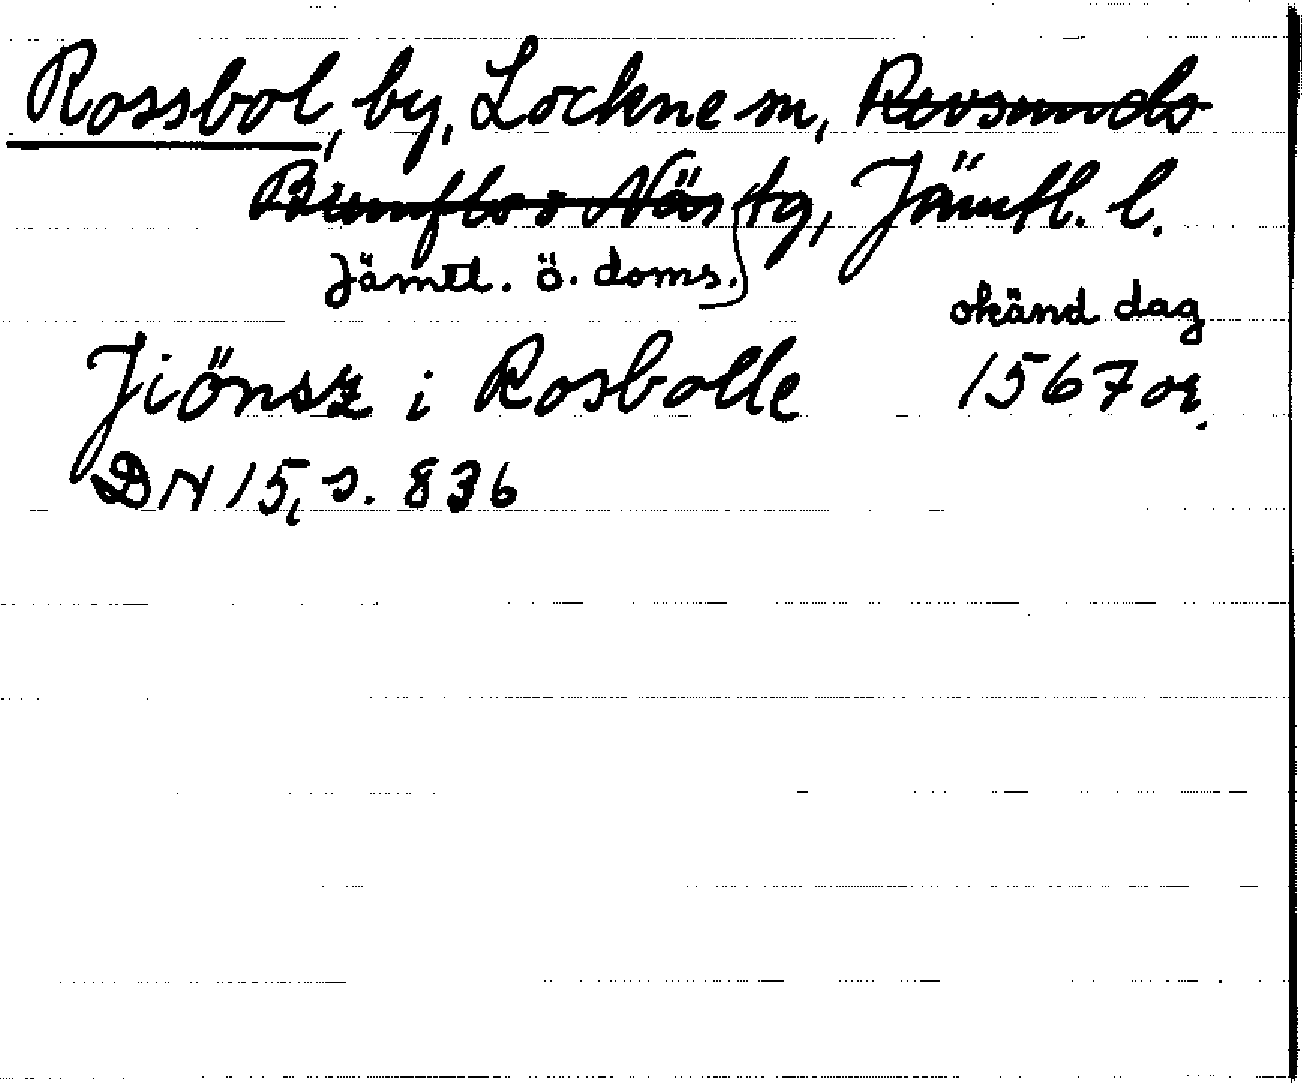 Rossbol, by, Lockne sn, Revsunds
Brunflo o Näs tg, Jämtl. l.
Jämtl. ö. doms.
okänd dag
Jiönsz i Rosbolle 1567 or.
DN 15, s. 836